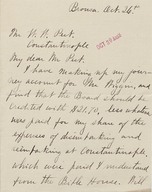 Broosa. Oct. 26th
Mr. W. W. Peet.
Constantinople
My dear Mr. Peet.
I have making up my jour-
ney account for Mr. Wiggin, and
find that the Board should be
credited with less whatever
were paid for my share of the
expenses of disembarking and
reembarking at Constantinople,
which were paid I understand
from the Bible House. Will